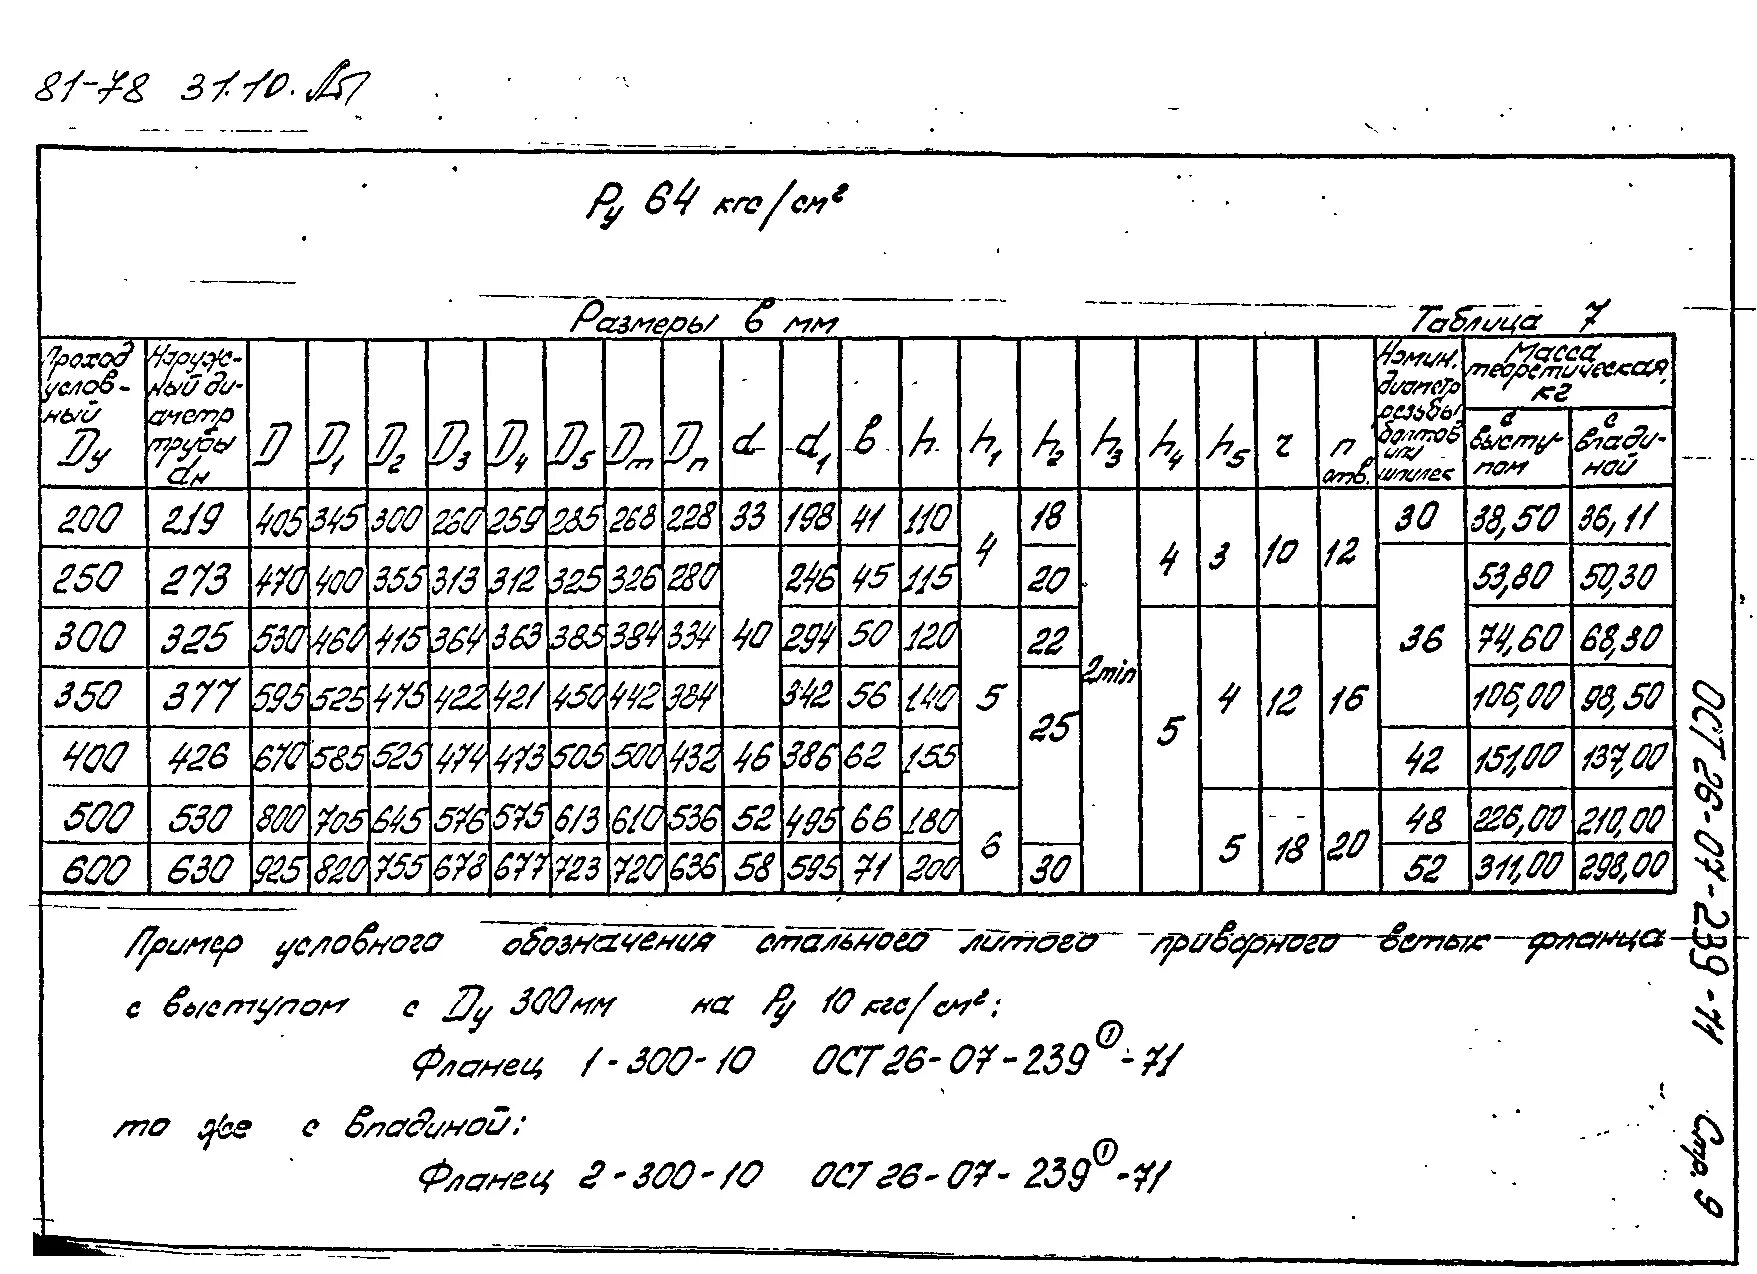 81-78 31.10.
Ру 64 кгс/см²
Размеры в мм Таблица 7
Проход условный Dу | Наружный диаметр трубы dн | D | D1 | D2 | D3 | D4 | D5 | Dm | Dn | d | d1 | в | h | h1 | h2 | h3 | h4 | h5 | r | n отв. | Номин. диаметр резьбы болтов или шпилек | Масса теоретическая, кг
с выступом | с впадиной
200 219 405 345 300 260 259 285 268 228 33 198 41 110 4 18 2min 4 3 10 12 30 38,50 36,11
250 273 470 400 355 313 312 325 326 280 40 246 45 115 20 36 53,80 50,30
300 325 530 460 415 364 363 385 384 334 294 50 120 5 22 5 4 12 16 74,60 68,30
350 377 595 525 475 422 421 450 442 384 342 56 140 25 106,00 98,50
400 426 670 585 525 474 473 505 500 432 46 386 62 155 42 151,00 137,00
500 530 800 705 645 576 575 613 610 536 52 495 66 180 6 5 18 20 48 226,00 210,00
600 630 925 820 755 678 677 723 720 636 58 595 71 200 30 52 311,00 298,00
Пример условного обозначения стального литого приворного встык фланца
с выступом с Dу 300мм на Ру 10 кгс/см²:
Фланец 1-300-10 ОСТ 26-07-239①-71
то же с впадиной:
Фланец 2-300-10 ОСТ 26-07-239①-71
ОСТ 26-07-239-71 Стр. 9